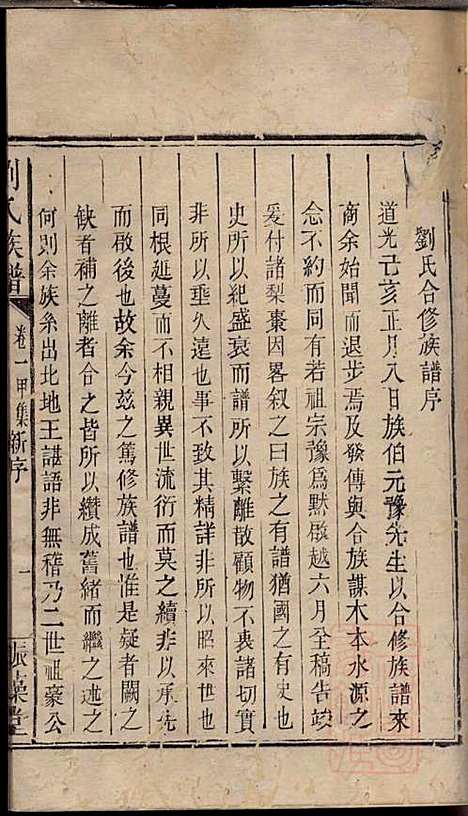 劉氏合修族譜序
道光己亥正月八日族伯元豫先生以合修族譜來
商余始聞而退步焉及發傳與合族謀木本水源之
念不約而同有若祖宗豫為默啟越六月全稿告竣
爰付諸梨棗因畧叙之曰族之有譜猶國之有史也
史所以紀盛衰而譜所以繫離散顧物不衷諸切實
非所以垂久遠也事不致其精詳非所以昭來世也
同根延蔓而不相親異世流衍而莫之續非以承先
而啟後也故余今兹之篤修族譜也惟是疑者闕之
缺者補之離者合之皆所以纘成舊緒而繼之述之
何則余族系出北地王諶語非無稽乃二世祖豪公
劉氏族譜 卷一甲集新序 一 賑藻堂